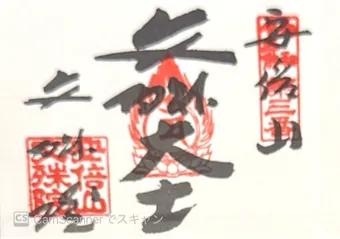 安倍山
文殊大士
文殊院
安倍山
文殊院
CS CamScanner でスキャン